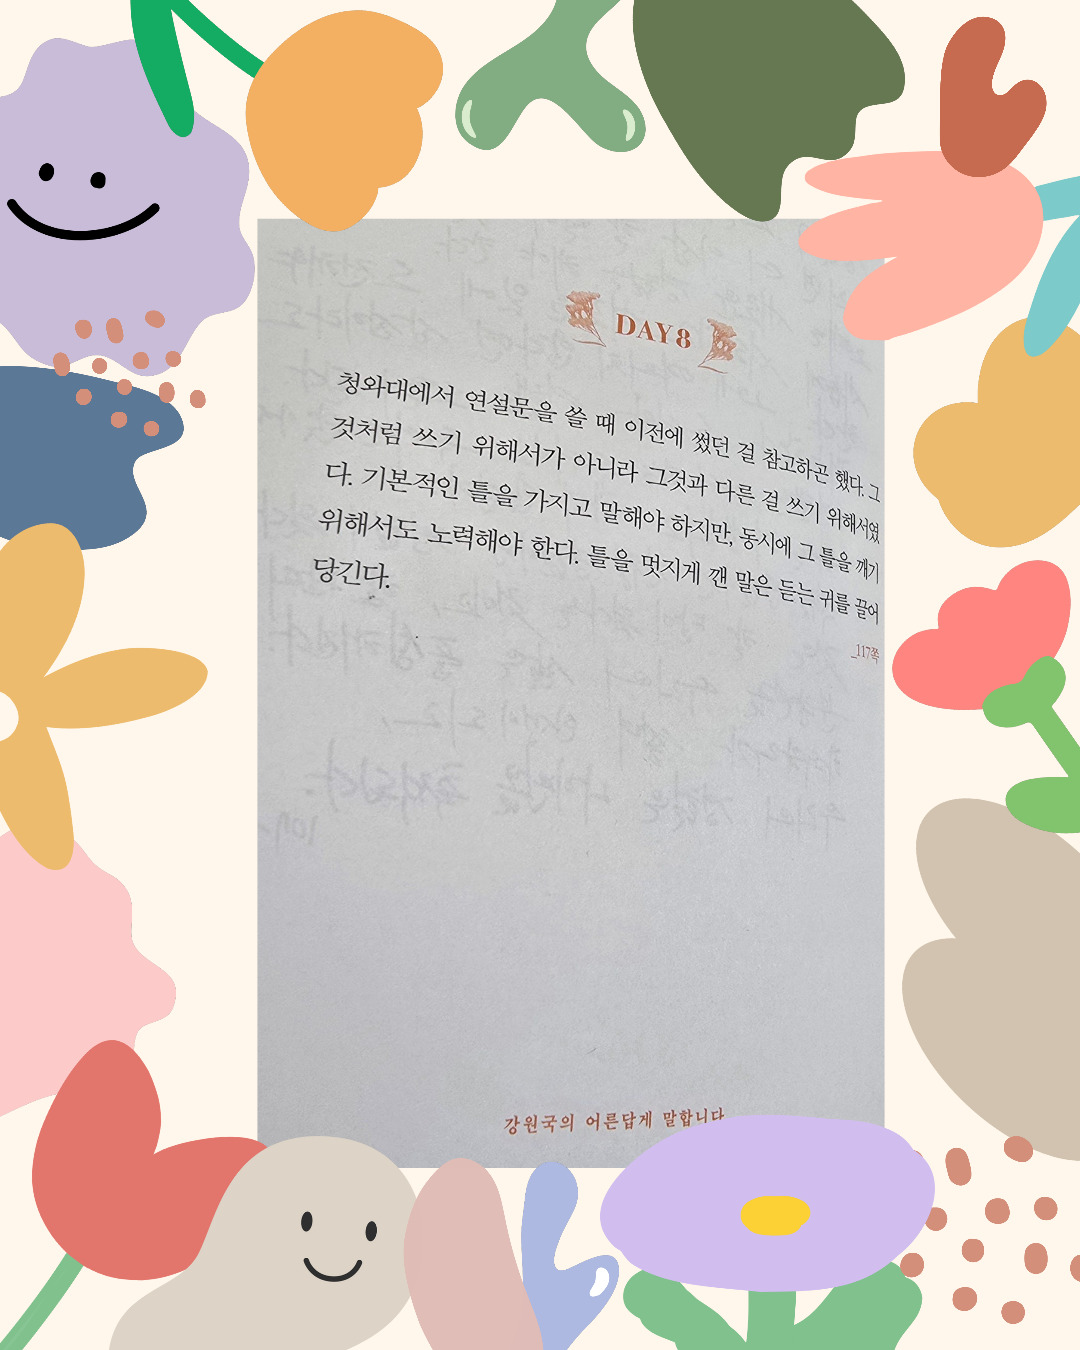 DAY 8
청와대에서 연설문을 쓸 때 이전에 썼던 걸 참고하곤 했다. 그
것처럼 쓰기 위해서가 아니라 그것과 다른 걸 쓰기 위해서였
다. 기본적인 틀을 가지고 말해야 하지만, 동시에 그 틀을 깨기
위해서도 노력해야 한다. 틀을 멋지게 깬 말은 듣는 귀를 끌어
당긴다.
_117쪽
강원국의 어른답게 말합니다